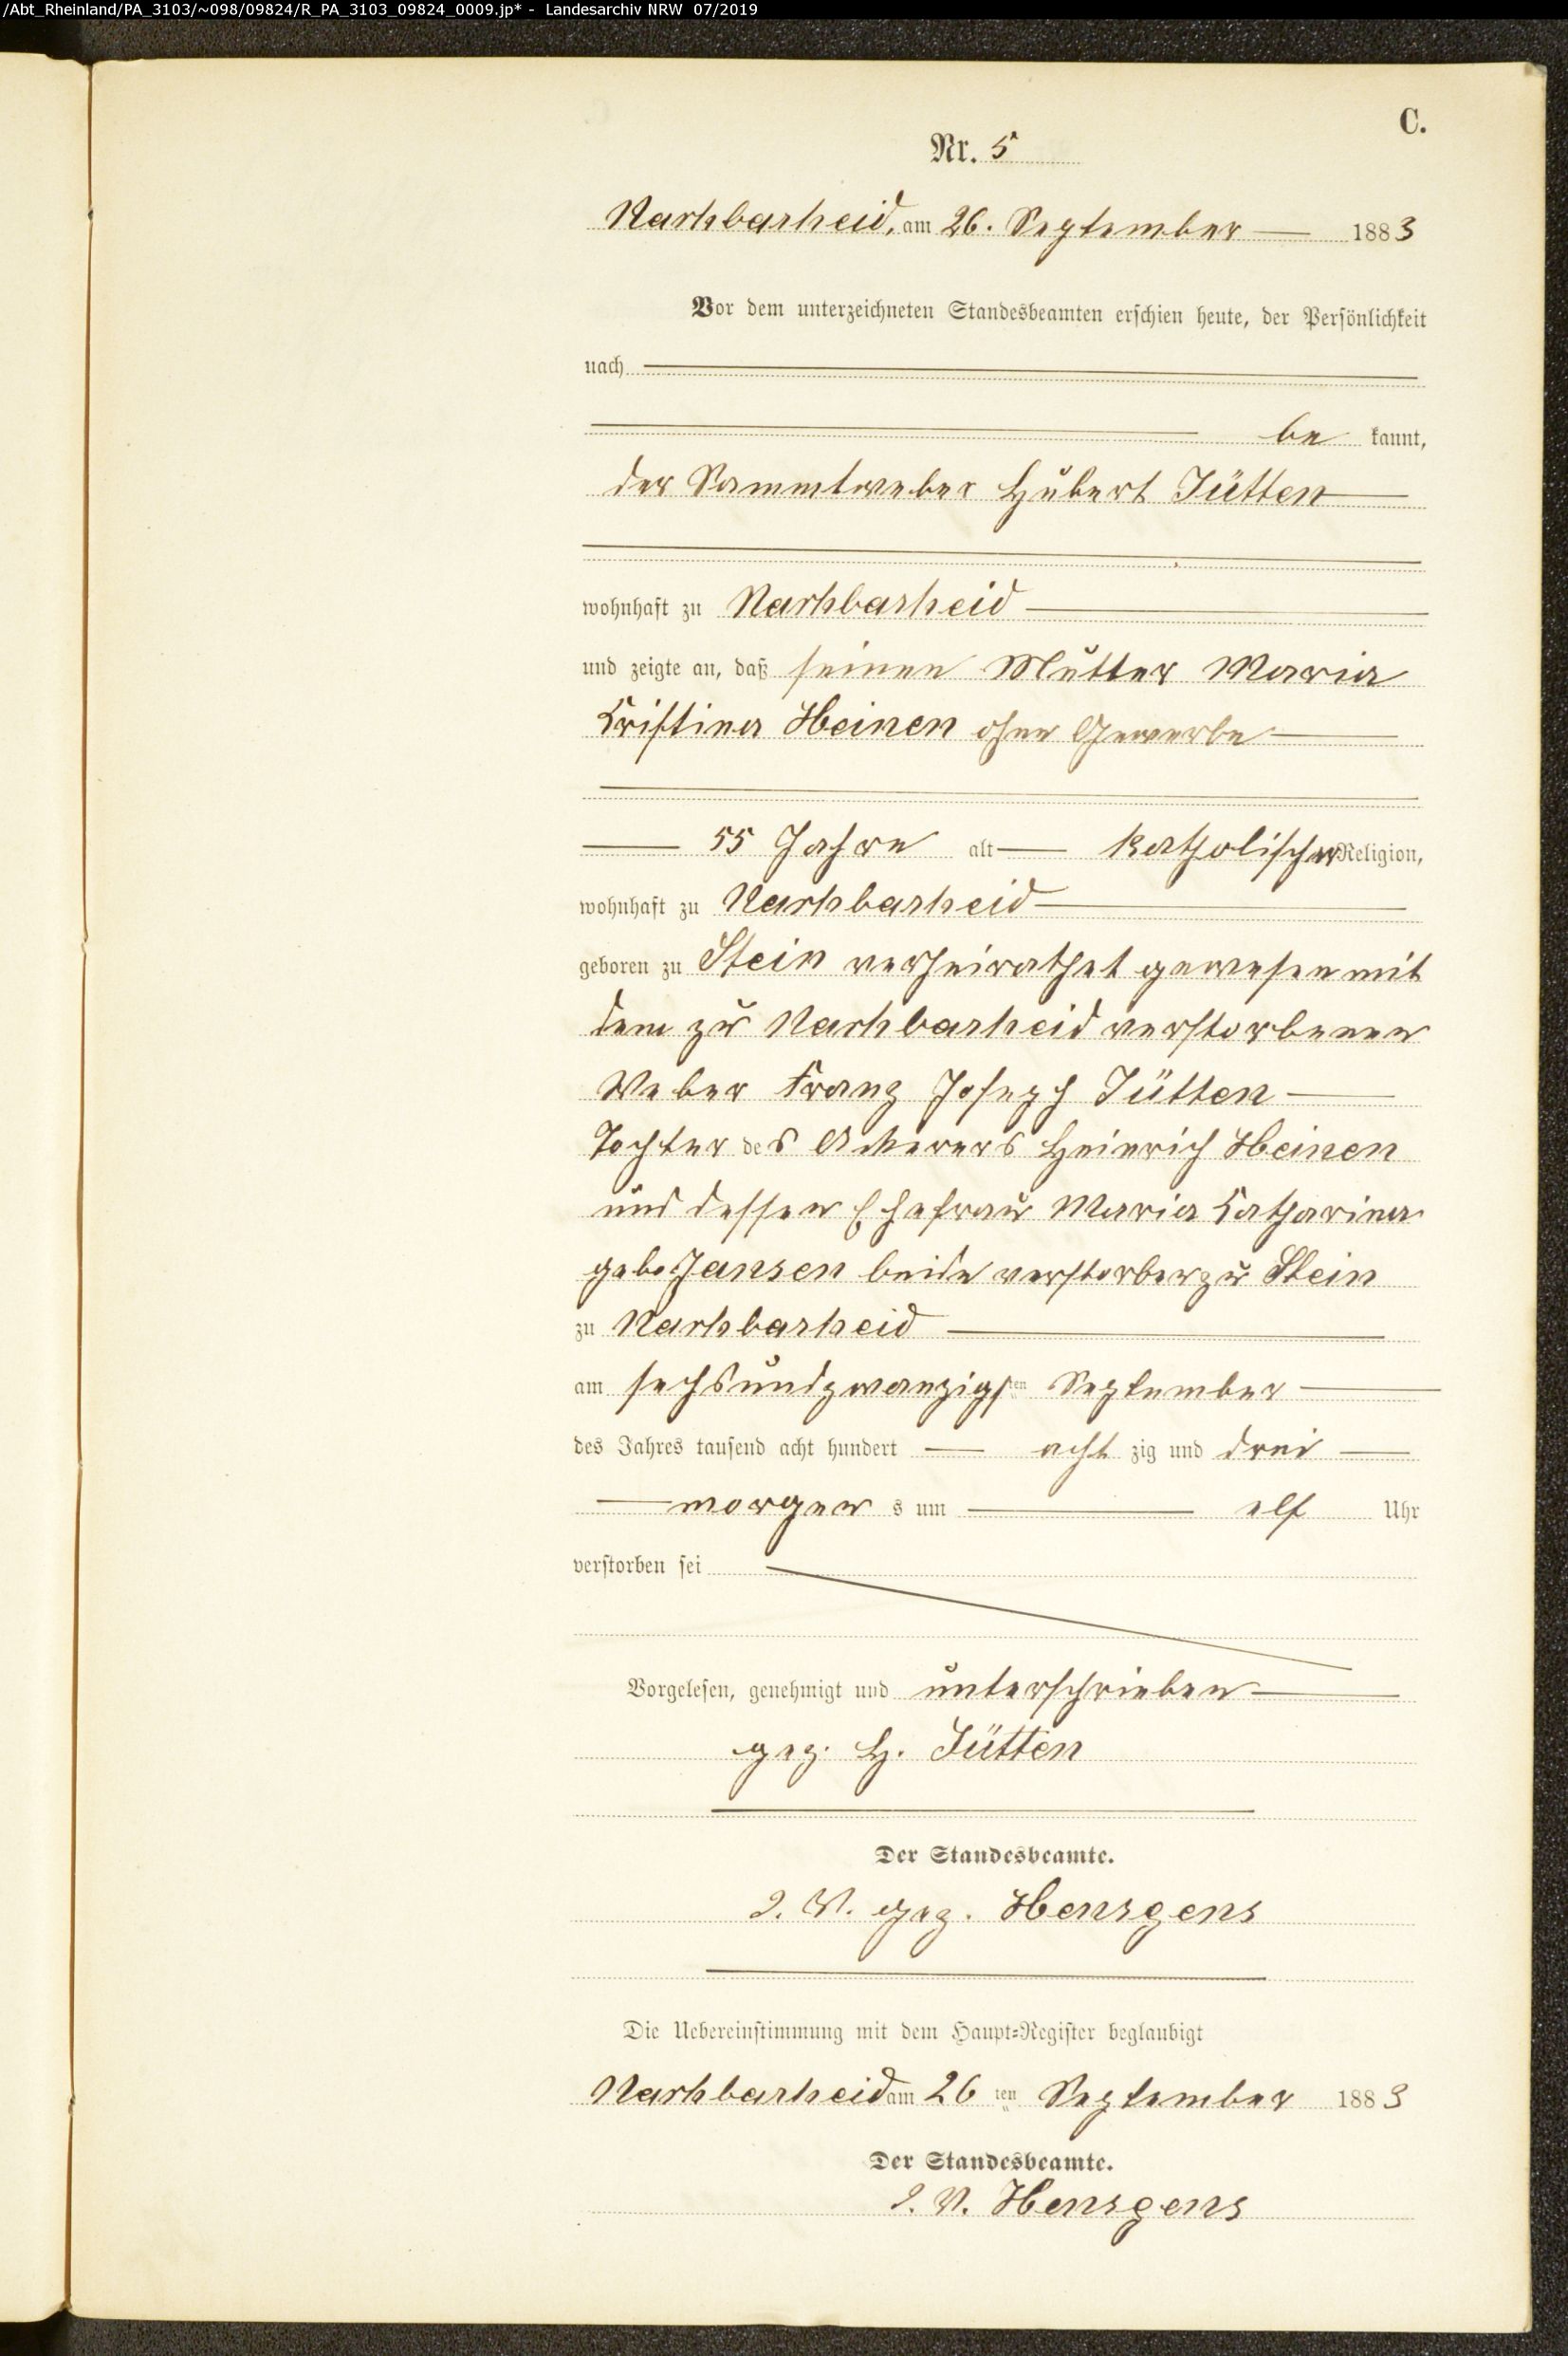 /Abt_Rheinland/PA_3103/~098/09824/R_PA_3103_09824_0009.jp* - Landesarchiv NRW 07/2019
C.
Nr. 5
Marhbarheid, am 26. September 1883
Vor dem unterzeichneten Standesbeamten erschien heute, der Persönlichkeit
nach
be kannt,
der Sammtweber Hubert Jütten
wohnhaft zu Marhbarheid
und zeigte an, daß seinen Mutter Maria
Cristina Heinen ohne Gewerbe
55 Jahre alt katholischer Religion,
wohnhaft zu Marhbarheid
geboren zu Stein verheirathet gewesen mit
dem zu Marhbarheid verstorbenen
Weber Franz Joseph Jütten
Tochter des Ackerers Heinrich Heinen
und dessen Ehefrau Maria Catharina
geb. Jansen beide verstorben zu Stein
zu Marhbarheid
am sechsundzwanzigsten September
des Jahres tausend acht hundert acht zig und drei
morgen s um elf Uhr
verstorben sei
Vorgelesen, genehmigt und unterschrieben
gez. H. Jütten
Der Standesbeamte.
I. V. gez. Hensgens
Die Uebereinstimmung mit dem Haupt-Register beglaubigt
Marhbarheid am 26 ten September 1883
Der Standesbeamte.
I. V. Hensgens